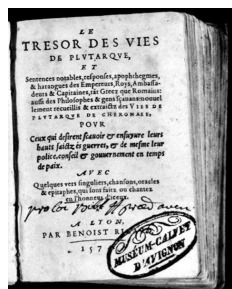 LE
TRESOR DES VIES
DE PLVTARQVE,
ET
Sentences notables, responses, apophthegmes,
& harangues des Empereurs, Roys, Ambassa-
deurs & Capitaines, tãt Grecz que Romains:
aussi des Philosophes & gens sçauans nouuel
lement recueillis & extraictz des VIES DE
PLVTARQVE DE CHERONEE,
POVR
Ceux qui desirent scauoir & ensuyure leurs
hauts faictz es guerres, & de mesme leur
police, conseil & gouuernement en temps
de paix.
AVEC
Quelques vers singuliers, chansons, oracles
& epitaphes, qui sont faitz ou chantez
en l'honneur d'iceux.
A LYON,
PAR BENOIST
157
MUSEUM-CALVET
D'AVIGNON